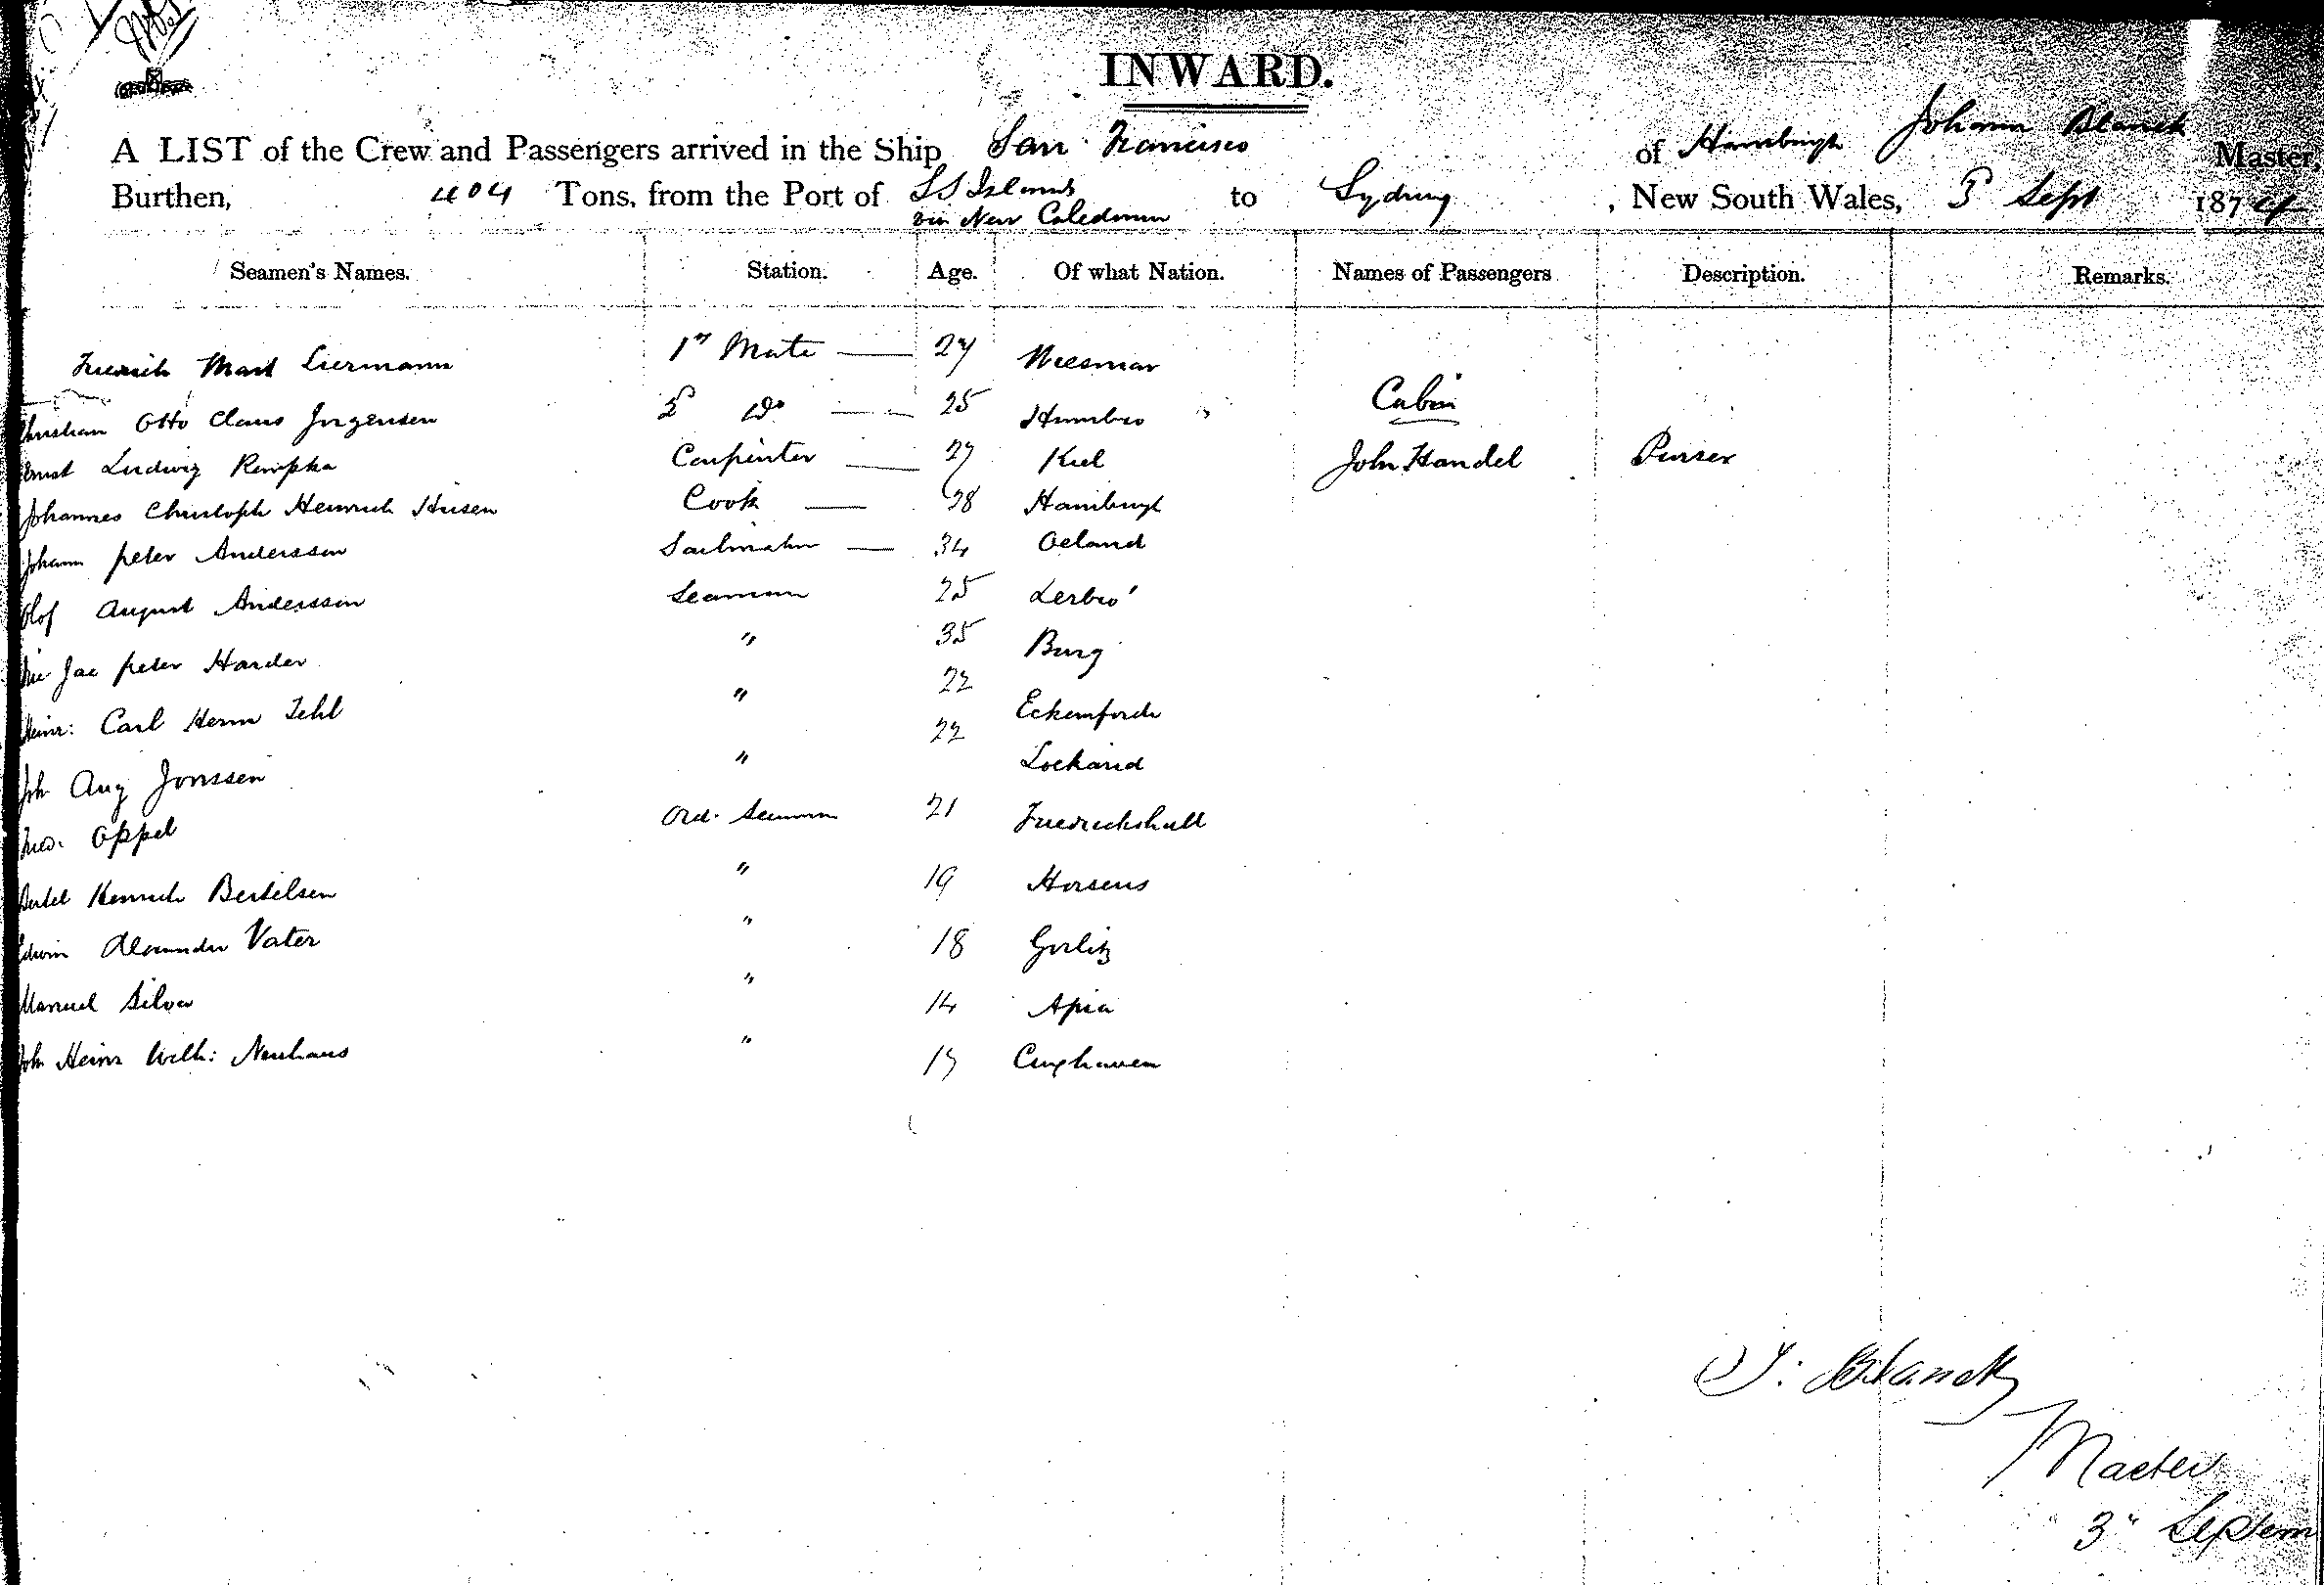 INWARD.
A LIST of the Crew and Passengers arrived in the Ship San Francisco of Hamburgh Johann Blanck Master,
Burthen, 404 Tons, from the Port of S S Islands via New Caledonia to Sydney, New South Wales, 3d Sept 1874
Seamen's Names. Station. Age. Of what Nation. Names of Passengers Description. Remarks.
Mart Liermann 1st Mate 27 Weesmar
Christian Otto Claus Jorgensen 2d Do 25 Cabin
Ernst Ludwig Rempka Carpenter 27 Kiel John Handel Purser
Johannes Christoph Heinrich Cook 28 Hamburgh
Johann peter Anderssen Sailmaker 34 Oeland
Olof August Anderssen Seaman 25
Jac peter Harder " 35 Burg
Heinr: Carl Herm " 22 Eckernforde
Joh Aug Jonssen " 22
Fred. Oppel Ord. Seaman 21 Fredrickshall
Bertel Henrich Bertelsen " 19 Horsens
Edwin Alexander Vater " 18 Gorlitz
Manuel Silva " 14 Apia
Joh Heinr Wilh: Neuhaus " Cuxhaven
J: Blanck
Master
3" Septem